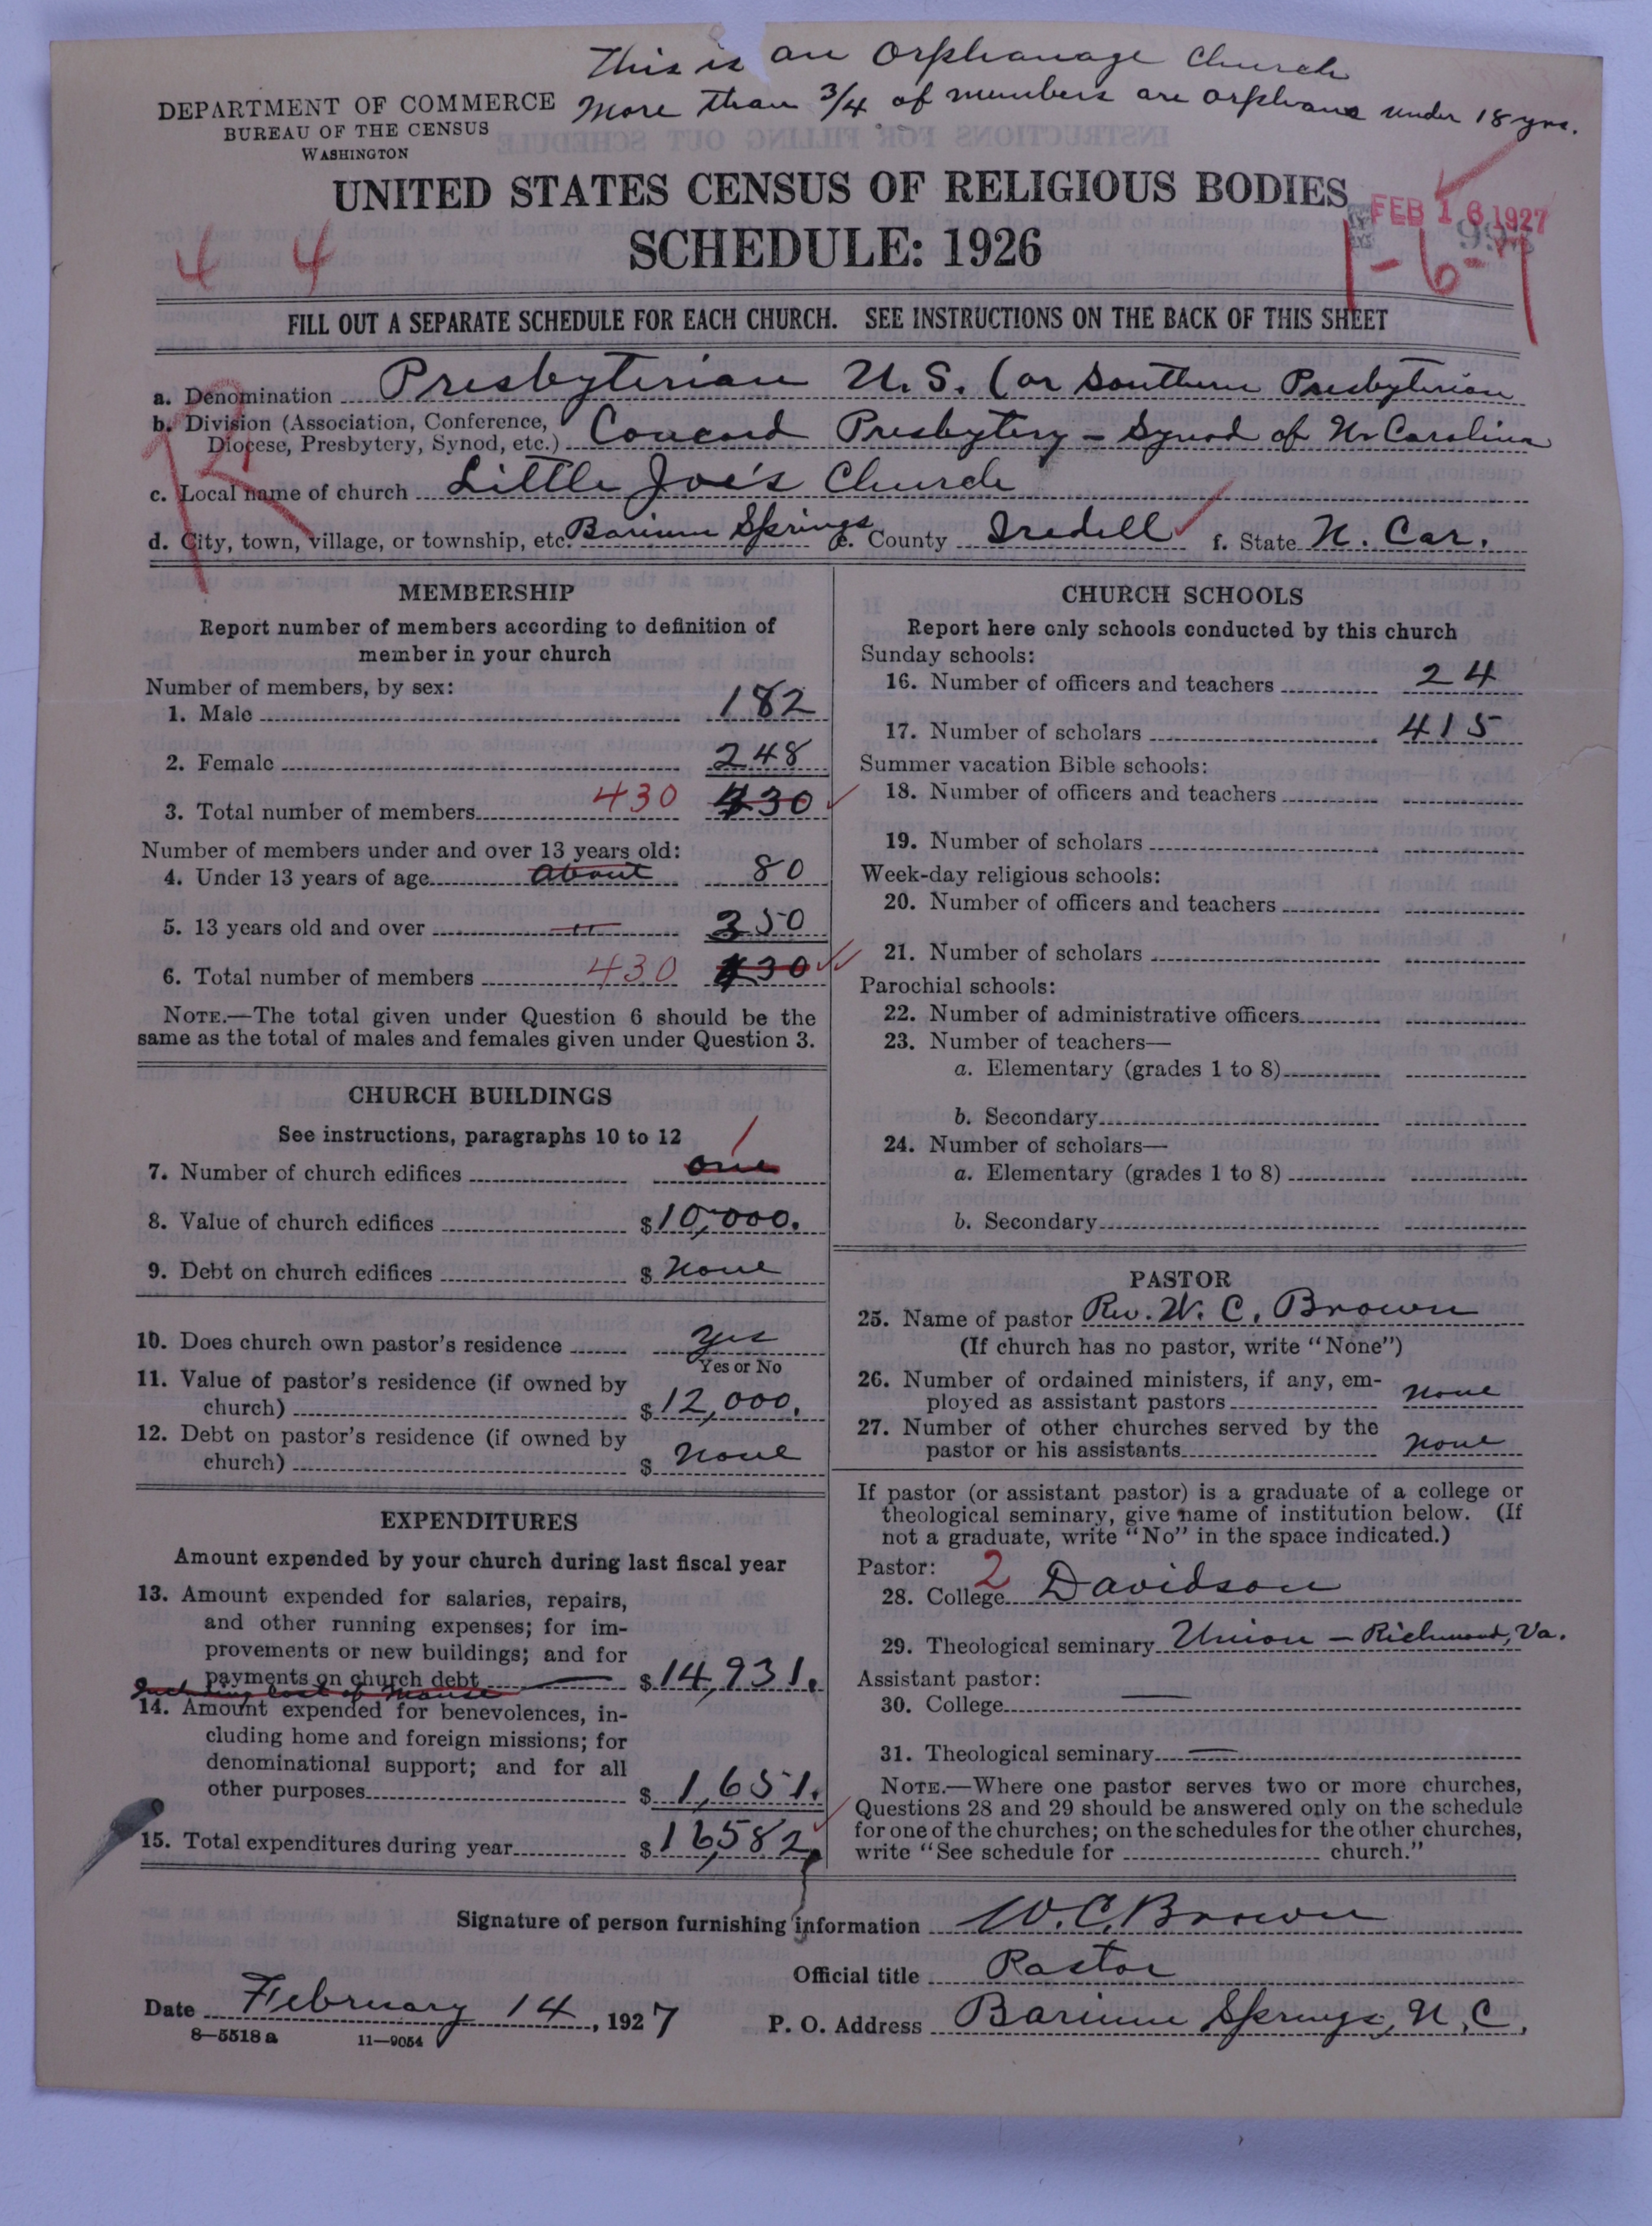 This is an Orphanage Church
More than 3/4 of members are orphans under 18 yrs.
DEPARTMENT OF COMMERCE
BUREAU OF THE CENSUS
WASHINGTON
UNITED STATES CENSUS OF RELIGIOUS BODIES
FEB 16 1927
SCHEDULE: 1926
4 4
1-6-7
FILL OUT A SEPARATE SCHEDULE FOR EACH CHURCH. SEE INSTRUCTIONS ON THE BACK OF THIS SHEET
a. Denomination Presbyterian U.S. (or Southern Presbyterian
b. Division (Association, Conference,
Diocese, Presbytery, Synod, etc.) Concord Presbytery - Synod of No Carolina
c. Local name of church Little Joe's Church
d. City, town, village, or township, etc. Barium Springs e. County Iredell f. State N. Car.
MEMBERSHIP
Report number of members according to definition of
member in your church
Number of members, by sex:
1. Male 182
2. Female 248
3. Total number of members 430 430
Number of members under and over 13 years old:
4. Under 13 years of age About 80
5. 13 years old and over " 350
6. Total number of members 430 430
NOTE.—The total given under Question 6 should be the
same as the total of males and females given under Question 3.
CHURCH BUILDINGS
See instructions, paragraphs 10 to 12
1
7. Number of church edifices one
8. Value of church edifices $10,000.
9. Debt on church edifices $ None
10. Does church own pastor's residence Yes
Yes or No
11. Value of pastor's residence (if owned by
church) $12,000.
12. Debt on pastor's residence (if owned by
church) $ None
EXPENDITURES
Amount expended by your church during last fiscal year
13. Amount expended for salaries, repairs,
and other running expenses; for im-
provements or new buildings; and for
payments on church debt $14,931.
Including cost of Manse
14. Amount expended for benevolences, in-
cluding home and foreign missions; for
denominational support; and for all
other purposes $ 1,651.
15. Total expenditures during year $16,582,
CHURCH SCHOOLS
Report here only schools conducted by this church
Sunday schools:
16. Number of officers and teachers 24
17. Number of scholars 415
Summer vacation Bible schools:
18. Number of officers and teachers
19. Number of scholars
Week-day religious schools:
20. Number of officers and teachers
21. Number of scholars
Parochial schools:
22. Number of administrative officers
23. Number of teachers—
a. Elementary (grades 1 to 8)
b. Secondary
24. Number of scholars—
a. Elementary (grades 1 to 8)
b. Secondary
PASTOR
25. Name of pastor Rev. W. C. Brown
(If church has no pastor, write "None")
26. Number of ordained ministers, if any, em-
ployed as assistant pastors None
27. Number of other churches served by the
pastor or his assistants None
If pastor (or assistant pastor) is a graduate of a college or
theological seminary, give name of institution below. (If
not a graduate, write "No" in the space indicated.)
Pastor: 2
28. College Davidson
29. Theological seminary Union - Richmond, Va.
Assistant pastor:
30. College —
31. Theological seminary —
NOTE.—Where one pastor serves two or more churches,
Questions 28 and 29 should be answered only on the schedule
for one of the churches; on the schedules for the other churches,
write "See schedule for church."
Signature of person furnishing information W.C. Brown
Official title Pastor
Date February 14, 1927
P. O. Address Barium Springs, N.C.
8—5518 a 11—9054